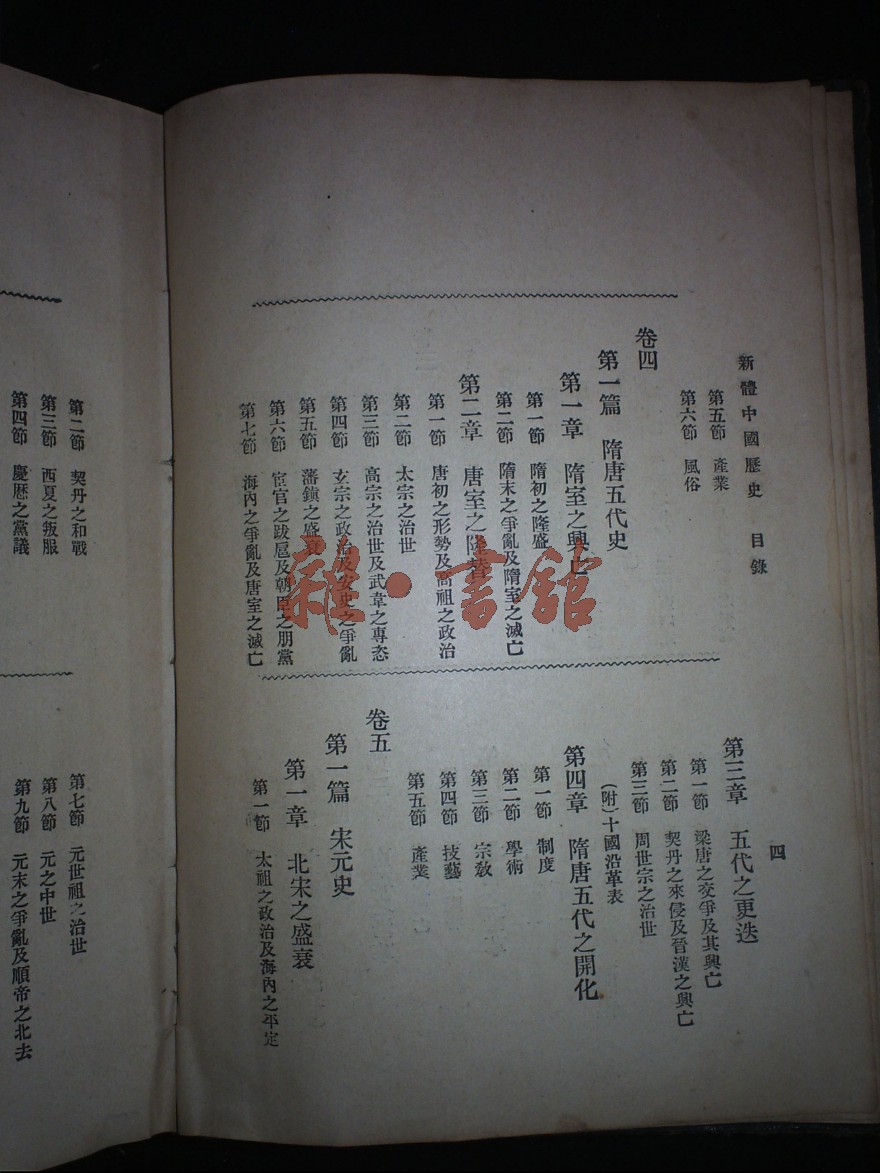 新體中國歷史　目錄
四
第五節　產業
第六節　風俗
卷四
第一篇　隋唐五代史
第一章　隋室之興亡
第一節　隋初之隆盛
第二節　隋末之爭亂及隋室之滅亡
第二章　唐室之隆替
第一節　唐初之形勢及高祖之政治
第二節　太宗之治世
第三節　高宗之治世及武韋之專恣
第四節　玄宗之政治及安史之爭亂
第五節　藩鎮之盛衰
第六節　宦官之跋扈及朝臣之朋黨
第七節　海內之爭亂及唐室之滅亡
第三章　五代之更迭
第一節　梁唐之交爭及其興亡
第二節　契丹之來侵及晉漢之興亡
第三節　周世宗之治世
(附)十國沿革表
第四章　隋唐五代之開化
第一節　制度
第二節　學術
第三節　宗教
第四節　技藝
第五節　產業
卷五
第一篇　宋元史
第一章　北宋之盛衰
第一節　太祖之政治及海內之平定
第二節　契丹之和戰
第三節　西夏之叛服
第四節　慶歷之黨議
第七節　元世祖之治世
第八節　元之中世
第九節　元末之爭亂及順帝之北去
雜·書館